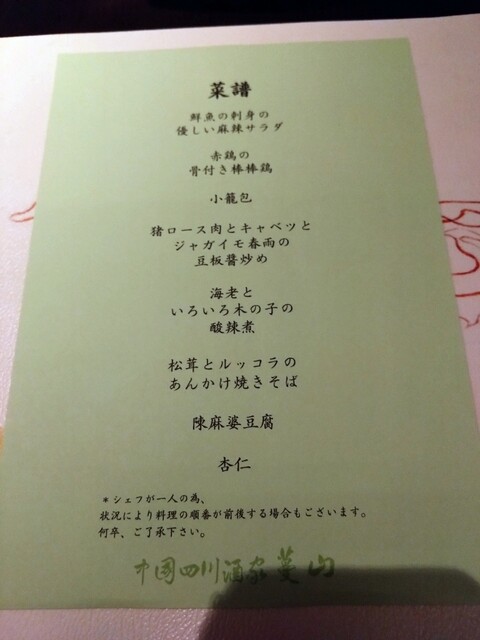 菜譜
鮮魚の刺身の
優しい麻辣サラダ
赤鶏の
骨付き棒棒鶏
小籠包
猪ロース肉とキャベツと
ジャガイモ春雨の
豆板醤炒め
海老と
いろいろ木の子の
酸辣煮
松茸とルッコラの
あんかけ焼きそば
陳麻婆豆腐
杏仁
＊シェフが一人の為、
状況により料理の順番が前後する場合もございます。
何卒、ご了承下さい。
中国四川酒家 蔓山